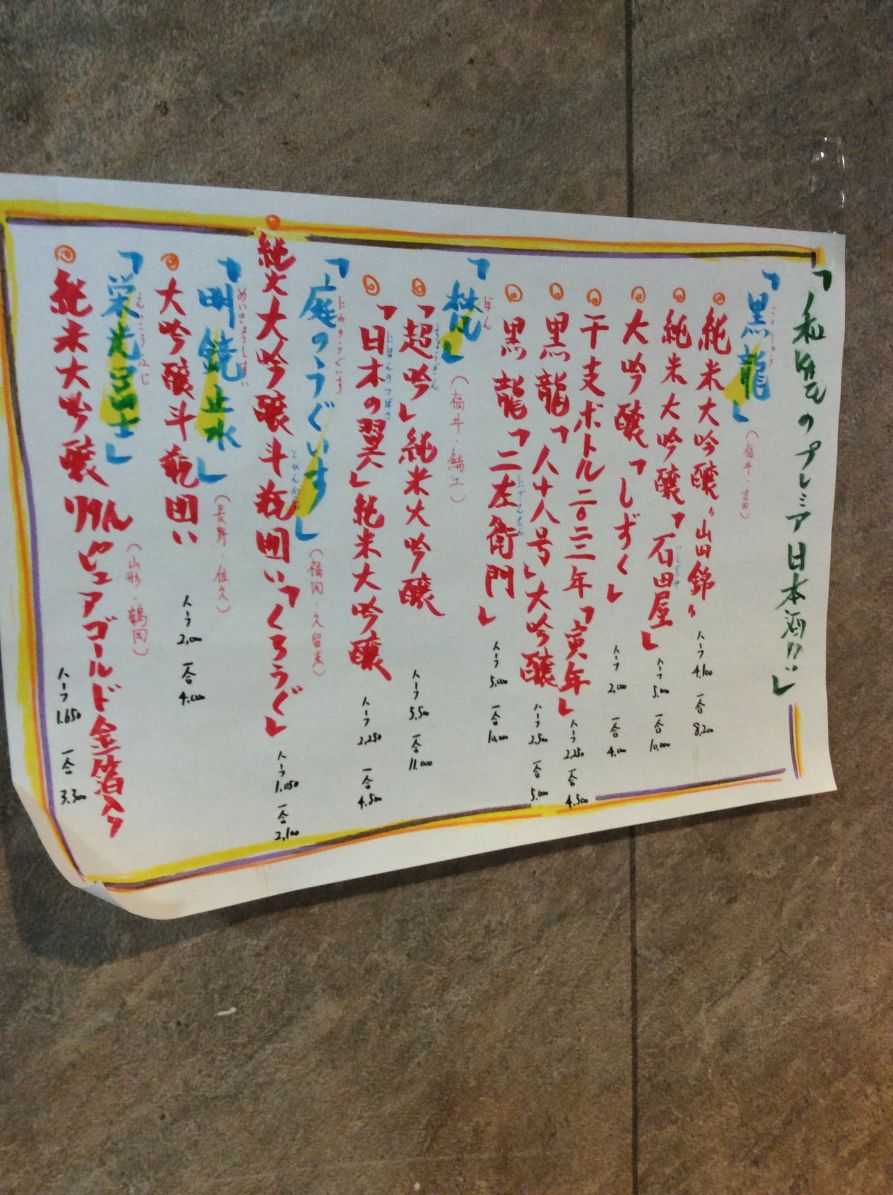 のプレミア日本酒!!」
「黒龍」
こくりゅう
(福井・吉田)
純米大吟醸〜山田錦〜 ハーフ 4,100 一合 8,200
純米大吟醸「石田屋」 ハーフ 5,000 一合 10,000
いしだや
大吟醸「しずく」 ハーフ 2,000 一合 4,000
干支ボトル二〇二二年「寅年」 ハーフ 2,250 一合 4,500
黒龍「八十八号」大吟醸 ハーフ 2,500 一合 5,000
黒龍「二左衛門」 ハーフ 5,000 一合 10,000
にざえもん
「梵」
ぼん
(福井・鯖江)
「超吟」純米大吟醸 ハーフ 5,500 一合 11,000
ちょうぎん
「日本の翼」純米大吟醸 ハーフ 2,250 一合 4,500
にほんのつばさ
「庭のうぐいす」
にわのうぐいす
(福岡・久留米)
純米大吟醸斗瓶囲い「くろうぐ」 ハーフ 1,050 一合 2,100
とびんかこい
「明鏡止水」
めいきょうしすい
(長野・佐久)
大吟醸斗瓶囲い ハーフ 2,000 一合 4,000
「栄光冨士」
えいこうふじ
(山形・鶴岡)
純米大吟醸 ピュアゴールド金箔入り ハーフ 1,650 一合 3,300